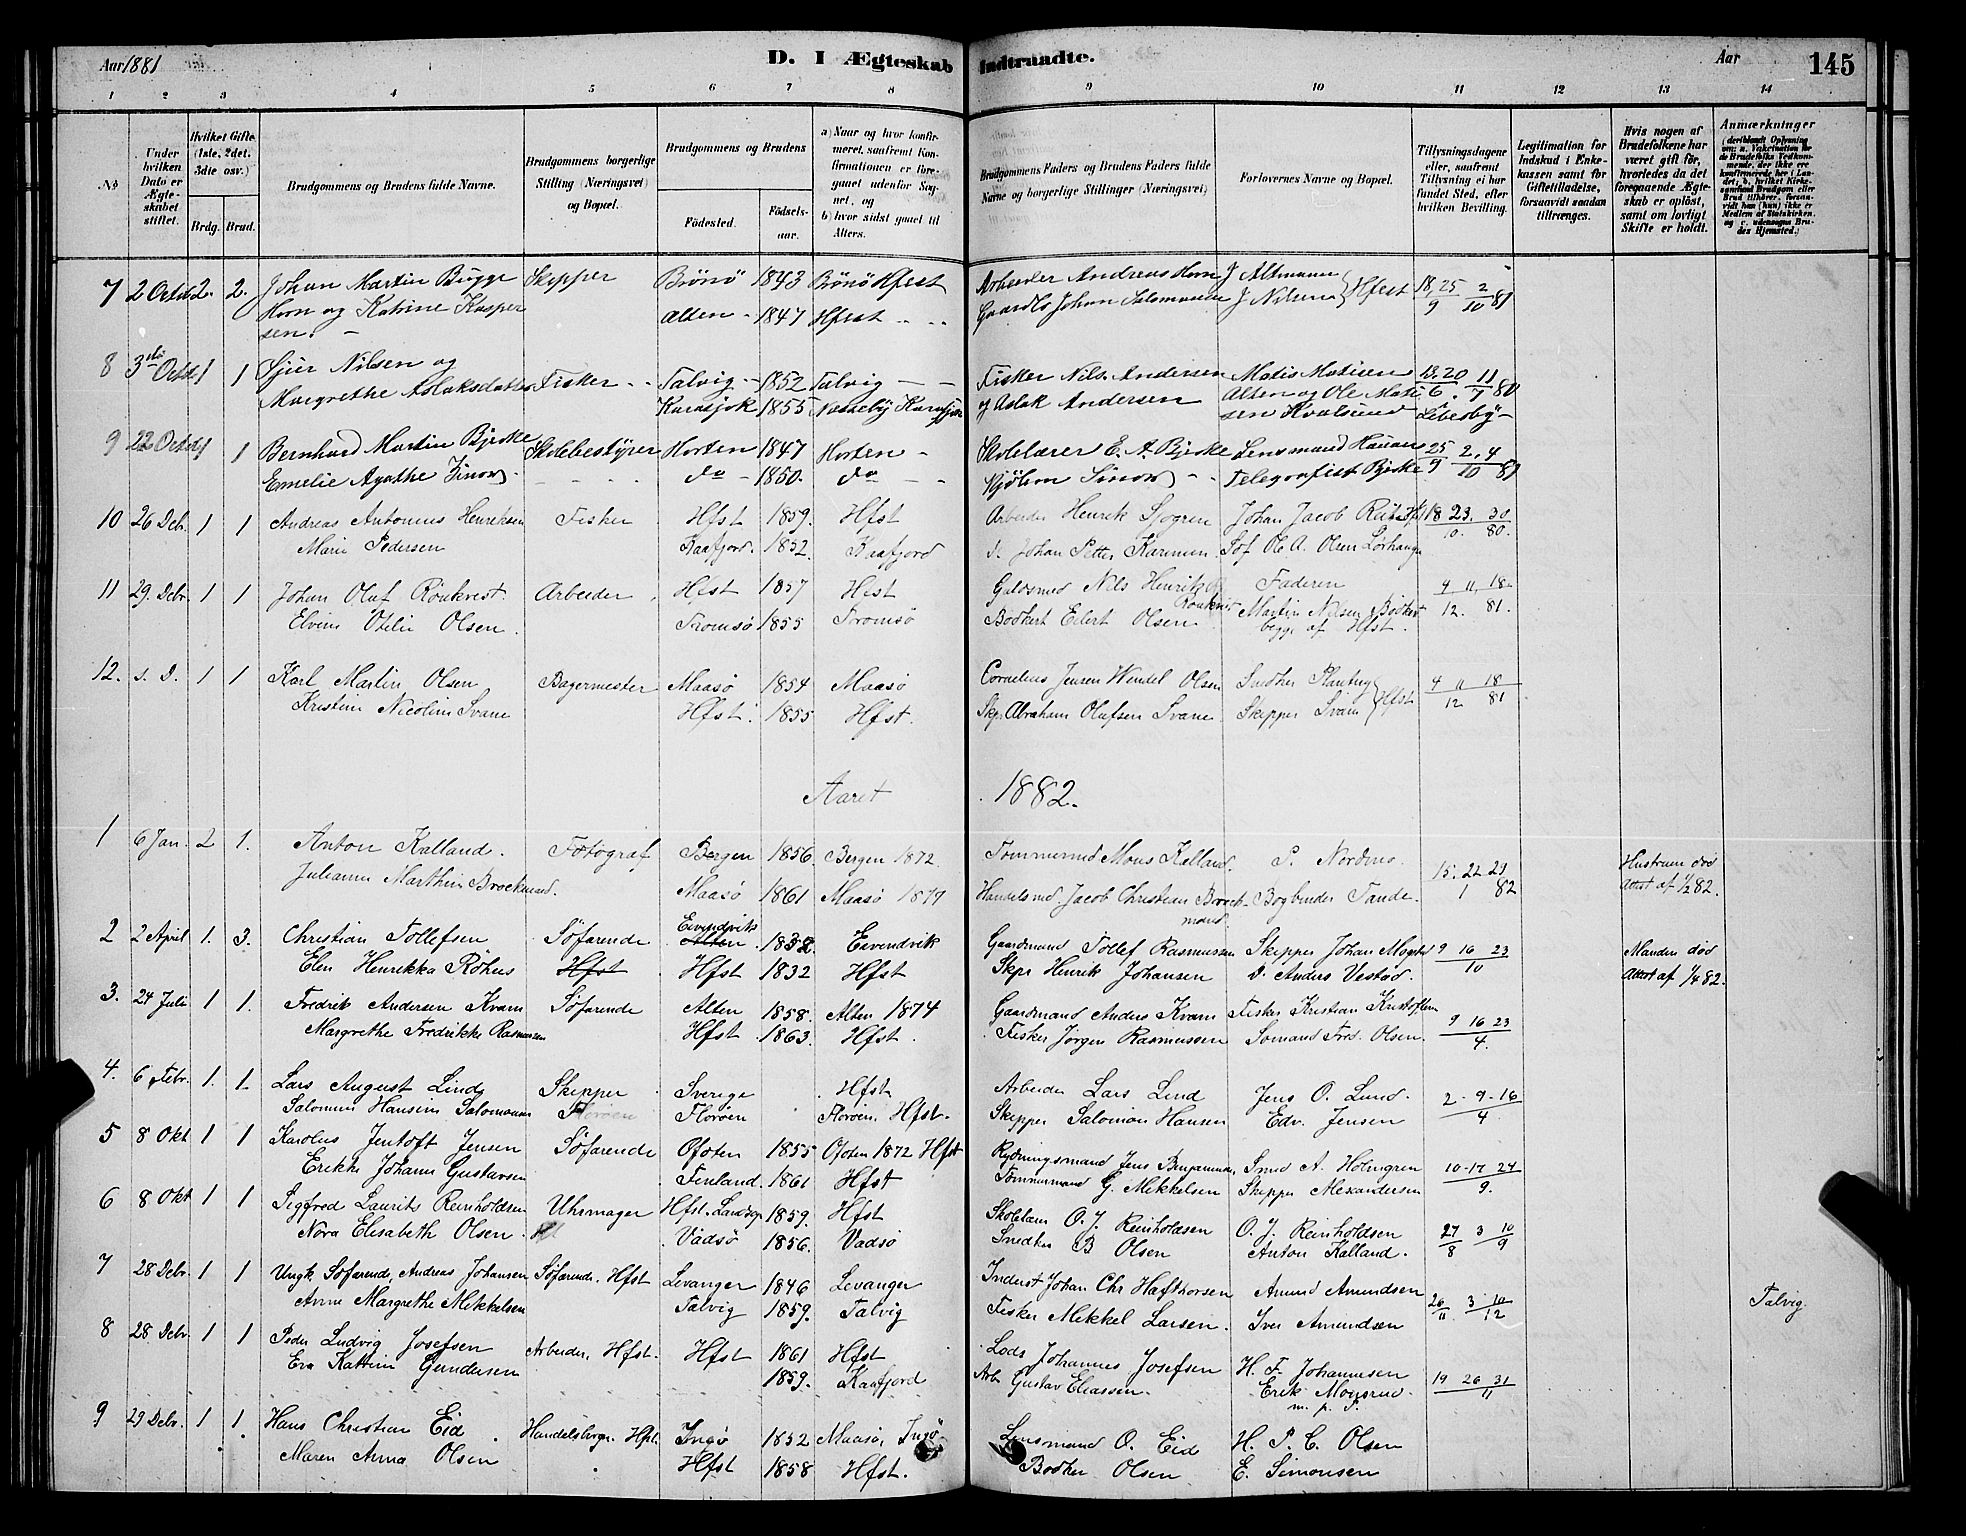 Aar 1881
D. I Ægteskab Indtraadte.
Aar
145
1 2 3 4 5 6 7 8 9 10 11 12 13 14
No
Under hvilken Dato er Ægteskabet stiftet.
Hvilket Gifte (1ste, 2det, 3die osv.)
Brdg. Brud.
Brudgommens og Brudens fulde Navne.
Brudgommens borgerlige Stilling (Næringsvei) og Bopæl.
Brudgommens og Brudens
Födested.
Födselsaar.
a) Naar og hvor konfirmeret, saafremt Konfirmationen er foregaaet udenfor Sognet, og
b) hvor sidst gaaet til Alters.
Brudgommens Faders og Brudens Faders fulde Navne og borgerlige Stillinger (Næringsvei)
Forlovernes Navne og Bopæl.
Tillysningsdagene eller, saafremt Tillysning ei har fundet Sted, efter hvilken Bevilling.
Legitimation for Indskud i Enkekassen samt for Giftetilladelse, forsaavidt saadan tiltrænges.
Hvis nogen af Brudefolkene har været gift för, hvorledes da det foregaaende Ægteskab er oplöst, samt om lovligt Skifte er holdt.
Anmærkninger
7 2 Octob 2. 2. Johan Martin Bugge Skipper Brönö 1843 Brönö Hfest Arbeider Andreas Horn J Altmann 18, 25 2
Horn og Katrine Kasper Alten - 1847 Hfest Gaardb Johan Salomonsen J Nilsen Hfest 9 10 81
sen. -
8 3die Octob 1 1 Sjur Nilsen og Fisker Talvig 1852 Talvig Fisker Nils Andersen Matis Matisen 13. 20 11
Margrethe Aslaksdatter Karasjok 1855 Nesseby Karasjok J Aslak Andersen Alten og Ole Mati 6 7 80
sen Kvalsund Lebesby
9 22 Octob 1 1 Bernhard Martin Bjerke Skolebestyrer Horten 1847 Horten Skolelærer E. A. Bjerke Lensmand Hauan 25 2, 4
Emelie Agathe do 1850. do Telegrafist Bjerke 9 10 81
10 26 Debr. 1 1 Andreas Antonius Henriksen Fisker Hfst 1859. Hfst Arbeider Henrik Sjogren Johan Jacob 18 23. 30
Marie Pedersen Kaafjord. 1852. Kaafjord Johan Petter Karinen. Söf Ol. A. Olsen 10. 80.
11 29. Debr. 1 1 Johan Oluf Rönkvest. Arbeider Hfst 1857 Hfst Guldsmed Nils Henrik Faderen 4 11, 18
Elvine Otilie Olsen. Tromsö 1855 Tromsö Bödkert Eilert Olsen Martin Nilsen Bödkert 12. 81.
begge af Hfst.
12. s. D. 1 1 Karl Martin Olsen Bagermester Maasö 1854 Maasö Cornelius Jensen Wendel Olsen Snedker 4 11 18
Kristine Nicoline Svane Hfst. 1855 Hfst. Skp. Abraham Olufsen Svane Skipper Svane Hfst 12 81
Aaret 1882.
1 6 Jan. 2 1. Anton Kalland. Fotograf Bergen 1856. Bergen 1872. Tömmermd Mons Kalland. P. Nordmo. 15. 22 29 Hustruen död
Julianne Marthine Brockmand. Maasö 1861 Maasö 1879 Handelsmd. Jacob Christian Brock- Bogbinder Tande. 1 82 Attest af 1/2 82.
mand
2 2 April 1. 3. Christian Tollefsen Söfarende Eivendvik 1838. Eivendvik Gaardmand Tollef Rasmussen Skipper Johan 9 16 23 Manden död
Elen Henrikka Röhus Hfst Hfst 1832 Hfst Skpr Henrik Johansen D. Anders Vestad. 10 Attest af 1/4 82.
3. 24 Juli 1 1. Fredrik Andersen Kvam Söfarende Alten 1858. Alten 1874 Gaardmand Anders Kvam Fisker Kristian Kristoffersen
Margrethe Fredrikke Rasmussen Hfst 1863. Hfst. Fisker Jörgen Rasmussen Sömand Fred. Olsen. 9 16 23
4.
4. 6 Febr. 1. 1. Lars August Lind Skipper Sverige Hfst Arbeider Lars Lind Jens O. Lund. 2 - 9 - 16
Salomine Hansine Salomonsen Floröen Floröen Floröen. Hfst. Skipper Salomon Hansen Edv. Jensen 4
5 8 Okt 1 1 Karolus Jentoft Jensen Söfarende Ofoten 1855 Ofoten 1872 Hfst Rydningsmand Jens Benjaminsen Smed A. Holmgren 10 - 17 24
Erikke Johanne Gustavsen Finland. 1861 Hfst Tömmermand G. Mikkelsen Skipper Alexandersen 9.
6 8 Okt 1 1 Sigfred Laurits Reinholdsen Uhrmager Hfst. Landsogn 1859. Hfst Skolelærer O. J. Reinholdsen O. J. Reinholdsen 27 3 10
Nora Elisabeth Olsen. Hfst Vadsö 1856. Vadsö Snedker B Olsen Anton Kalland. 8 9
7 28 Debr. 1 1 Ungk. Söfarende, Andreas Johansen Söfarende. Hfst Levanger 1846 Levanger Inderst Johan Chr Hafthorsen Amund Amundsen 26 3 10 Talvig.
Anne Margrethe Mikkelsen Talvig 1859. Talvig Fisker Mikkel Larsen. Iver Amundsen 11. 12
8 28 Debr. 1 1 Peder Ludvig Josefsen Arbeider, Hfst. Hfst 1861 Hfst Lods Johannes Josefsen H. F. Johannesen 19 26 31
Eva Kattrine Gundersen 1859. Kaafjord Arb Gustav Eliassen. Erik 11
m. p. P.
9 29 Debr. 1 1. Hans Christian Eid Handelsborger Hfst. Ingö 1852 Maasö, Ingö Lensmand O. Eid H. P. C. Olsen
Maren Anna Olsen Hfst 1858 Hfst. Bödker Olsen E. Simonsen